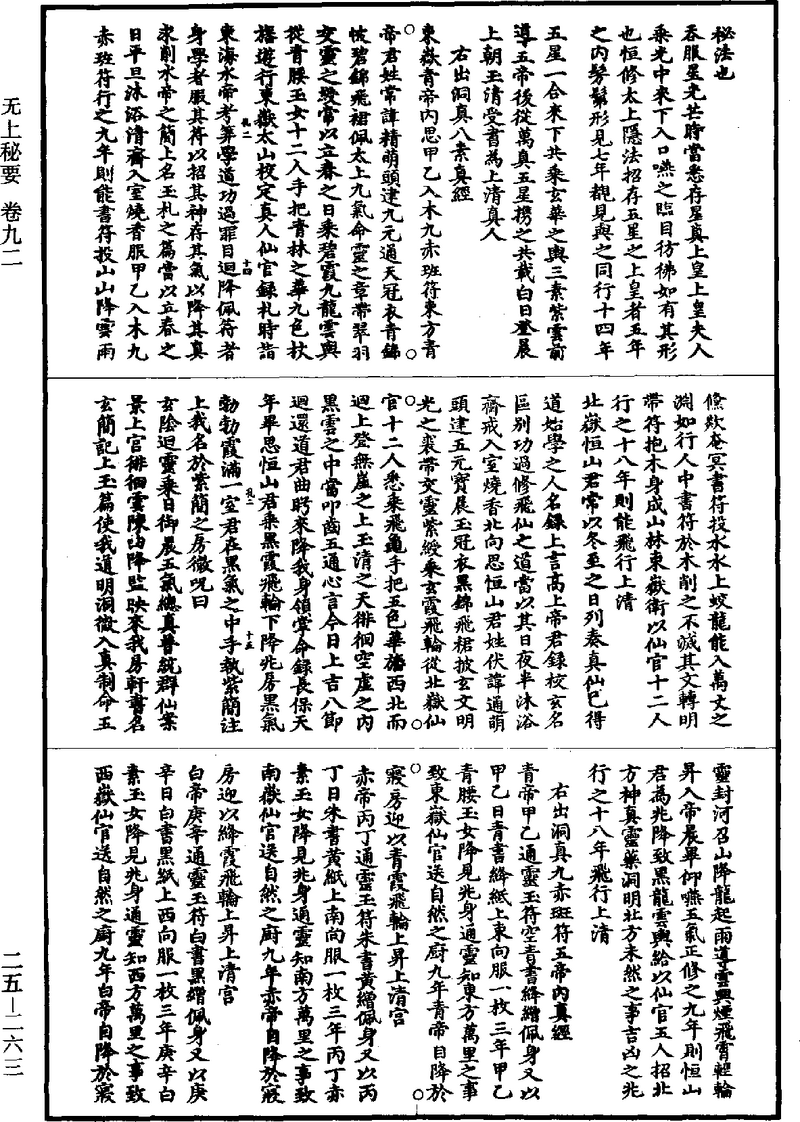 秘法也
吞服星光芒時當悉存星真上皇上皇夫人
乘光中來下入口嚥之臨目彷彿如有其形
也恒修太上隱法招存五星之上皇者五年
之内髣髴形見七年都見與之同行十四年
五星一合來下共乘玄華之輿三素紫雲前
導五帝後從萬真五星携之共載白日登晨
上朝玉清受書為上清真人
右出洞真八素真經
東嶽青帝内思甲乙入木九赤班符東方青
帝君姓常諱精萌頭建九元通天冠衣青錦
帔碧錦飛裙佩太上九氣命靈之章帶翠羽
交靈之綬常以立春之日乘碧霞九龍雲輿
從青腰玉女十二人手把青林之華九色杖
旛遊行東嶽太山校定真人仙官録札時詣
東海水帝考筭學道功過罪目迴降佩符者
身學者服其符以招其神存其氣以降其真
求削水帝之簡上名玉札之篇當以立春之
日平旦沐浴清齋入室燒香服甲乙入木九
赤班符行之九年則能書符投山山降雲雨
儵欻奄冥書符投水水上蛟龍能入萬丈之
淵如行人中書符於木削之不滅其文轉明
帶符抱木身成山林東嶽衛以仙官十二人
行之十八年則能飛行上清
北嶽恒山君常以冬至之日列奏真仙已得
道始學之人名録上言高上帝君録校玄名
區別功過修飛仙之道當以其日夜半沐浴
齋戒入室燒香北向思恒山君姓伏諱通萌
頭建五元寶晨玉冠衣黑錦飛裙披玄文明
光之裘帶交靈紫綬乘玄霞飛輪從北嶽仙
官十二人悉乘飛龜手把五色華旛西北而
迴上登無崖之上玉清之天徘徊空虛之内
黑雲之中當叩齒五通心言今日上吉八節
迴還道君曲眄來降我身領掌命録長保天
年畢思恒山君乘黑霞飛輪下降兆房黑氣
勃勃霞滿一室君在黑氣之中手執紫簡注
上我名於紫簡之房微呪曰
玄陰迴靈乘日御晨五氣總真普統群仙案
景上宮徘徊雲陳迴降監映來我房軒書名
玄簡記上玉篇使我道明洞微入真制命五
靈封河召山降龍起雨導雲興煙飛霄輕輪
昇入帝晨畢仰嚥五氣正修之九年則恒山
君為兆降致黑龍雲輿給以仙官五人招北
方神真靈藥洞明北方未然之事吉凶之兆
行之十八年飛行上清
右出洞真九赤班符五帝内真經
青帝甲乙通靈玉符空青書絳繒佩身又以
甲乙日青書絳紙上東向服一枚三年甲乙
青腰玉女降見兆身通靈知東方萬里之事
致東嶽仙官送自然之厨九年青帝自降於
寢房迎以青霞飛輪上昇上清宮
赤帝丙丁通靈玉符朱書黄繒佩身又以丙
丁日朱書黄紙上南向服一枚三年丙丁赤
素玉女降見兆身通靈知南方萬里之事致
南嶽仙官送自然之厨九年赤帝自降於寢
房迎以絳霞飛輪上昇上清宮
白帝庚辛通靈玉符白書黑繒佩身又以庚
辛日白書黑紙上西向服一枚三年庚辛白
素玉女降見兆身通靈知西方萬里之事致
西嶽仙官送自然之厨九年白帝自降於寢
无上秘要 卷九二
二五—二六三